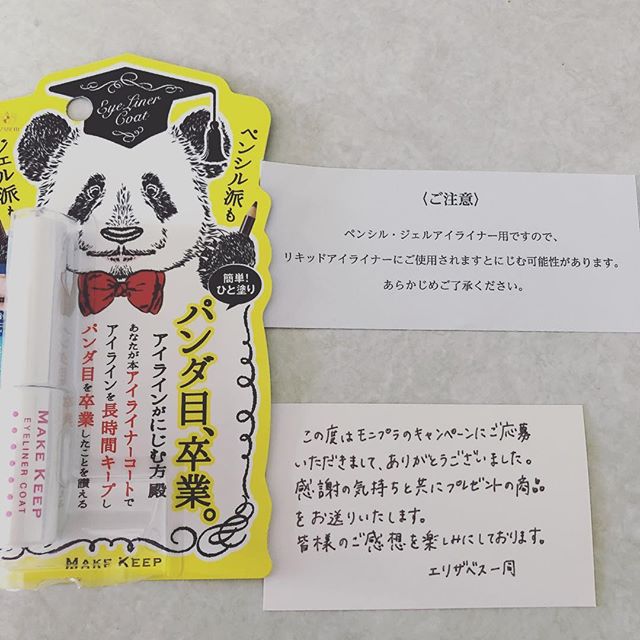 Eye Liner
Coat
ペンシル派も
ジェル派も
簡単!
ひと塗り
パンダ目、卒業。
アイラインがにじむ方 殿
あなたが本アイライナーコートで
アイラインを長時間キープし
パンダ目を卒業したことを讃える
MAKE KEEP
MAKE KEEP
EYELINER COAT
〈ご注意〉
ペンシル・ジェルアイライナー用ですので、
リキッドアイライナーにご使用されますとにじむ可能性があります。
あらかじめご了承ください。
この度はモニプラのキャンペーンにご応募
いただきまして、ありがとうございました。
感謝の気持ちと共にプレゼントの商品
をお送りいたします。
皆様のご感想を楽しみにしております。
エリザベス一同